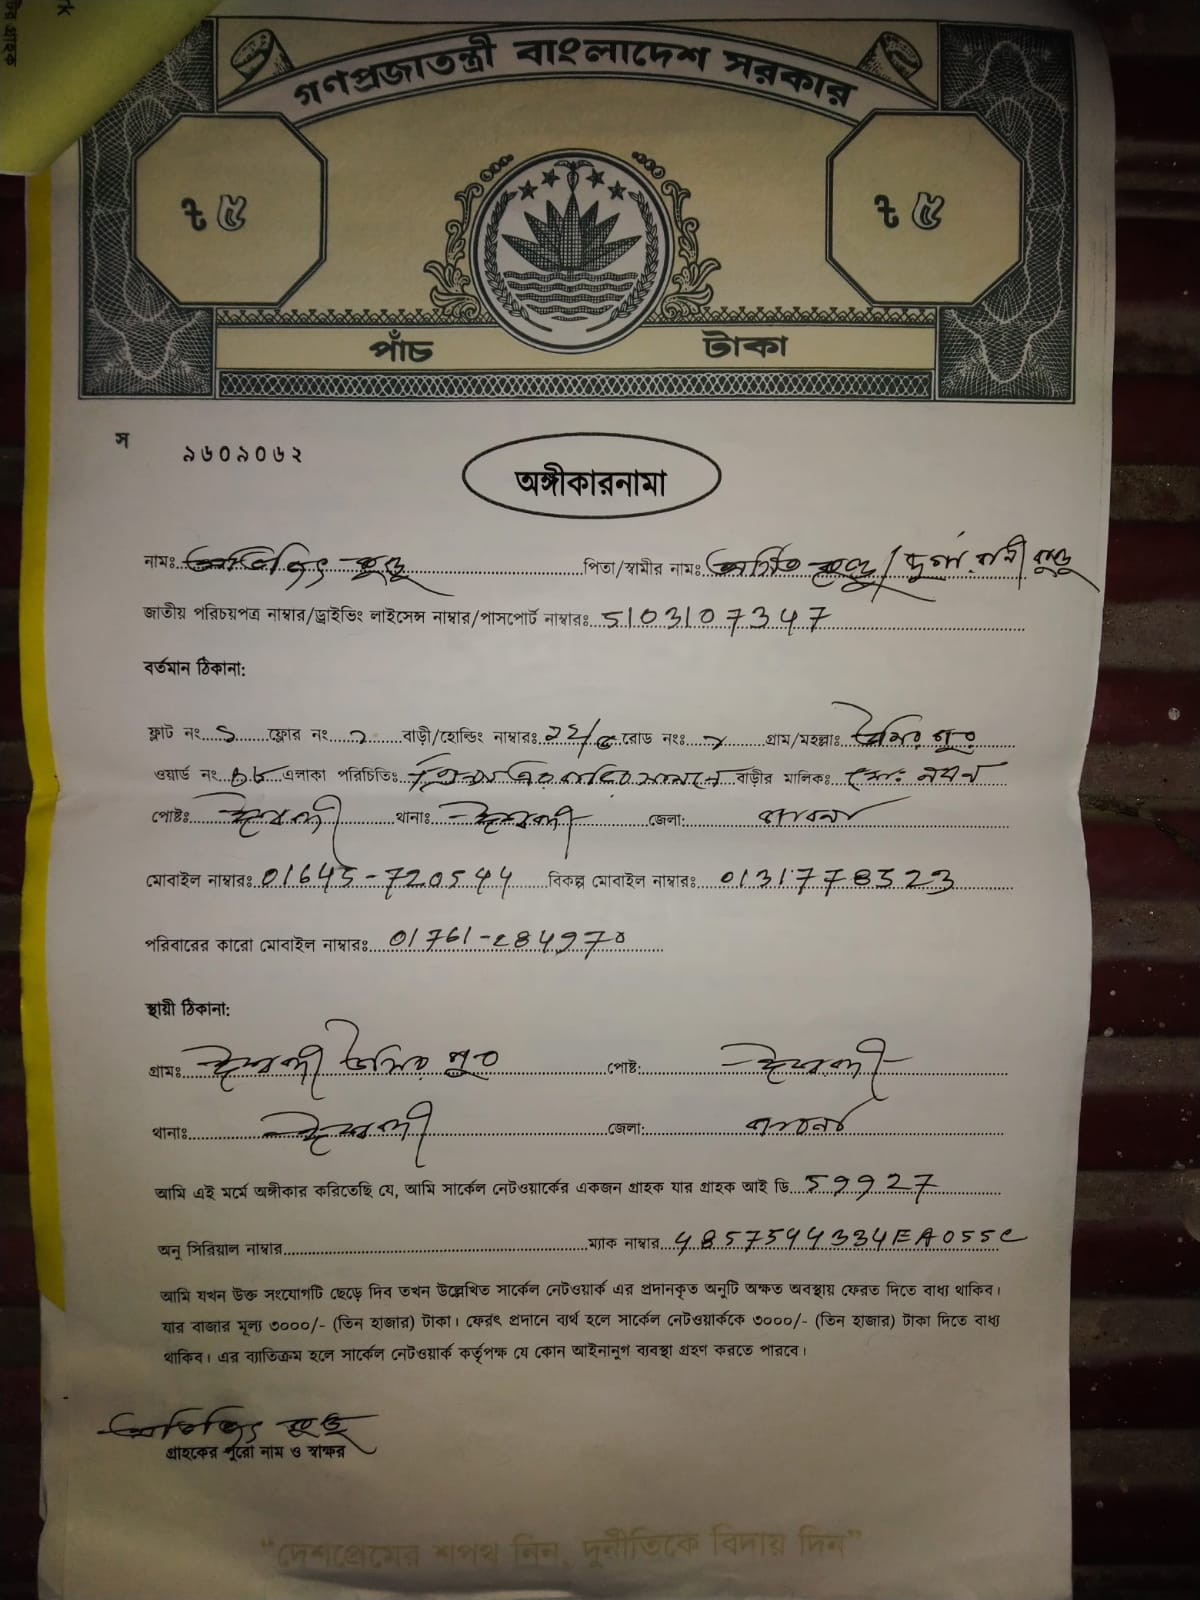 গণপ্রজাতন্ত্রী বাংলাদেশ সরকার
৳ ৫ ৳ ৫
পাঁচ টাকা
স ৯৬০৯০৬২
অঙ্গীকারনামা
নামঃ অভিজিৎ কুন্ডু পিতা/স্বামীর নামঃ অসিত কুন্ডু/দুর্গা রানী কুন্ডু
জাতীয় পরিচয়পত্র নাম্বার/ড্রাইভিং লাইসেন্স নাম্বার/পাসপোর্ট নাম্বারঃ 5103107347
বর্তমান ঠিকানা:
ফ্লাট নং ফ্লোর নং বাড়ী/হোল্ডিং নাম্বারঃ রোড নংঃ গ্রাম/মহল্লাঃ
ওয়ার্ড নং এলাকা পরিচিতিঃ বাড়ীর মালিকঃ মোঃ
পোষ্টঃ ঈশ্বরদী থানাঃ ঈশ্বরদী জেলা: পাবনা
মোবাইল নাম্বারঃ 01645-720544 বিকল্প মোবাইল নাম্বারঃ 0131778523
পরিবারের কারো মোবাইল নাম্বারঃ
স্থায়ী ঠিকানা:
গ্রামঃ ঈশ্বরদী পোষ্ট: ঈশ্বরদী
থানাঃ ঈশ্বরদী জেলা: পাবনা
আমি এই মর্মে অঙ্গীকার করিতেছি যে, আমি সার্কেল নেটওয়ার্কের একজন গ্রাহক যার গ্রাহক আই ডি
অনু সিরিয়াল নাম্বার ম্যাক নাম্বার
আমি যখন উক্ত সংযোগটি ছেড়ে দিব তখন উল্লেখিত সার্কেল নেটওয়ার্ক এর প্রদানকৃত অনুটি অক্ষত অবস্থায় ফেরত দিতে বাধ্য থাকিব।
যার বাজার মূল্য ৩০০০/- (তিন হাজার) টাকা। ফেরৎ প্রদানে ব্যর্থ হলে সার্কেল নেটওয়ার্ককে ৩০০০/- (তিন হাজার) টাকা দিতে বাধ্য
থাকিব। এর ব্যাতিক্রম হলে সার্কেল নেটওয়ার্ক কর্তৃপক্ষ যে কোন আইনানুগ ব্যবস্থা গ্রহণ করতে পারবে।
অভিজিৎ কুন্ডু
গ্রাহকের পুরো নাম ও স্বাক্ষর
“দেশপ্রেমের শপথ নিন, দুর্নীতিকে বিদায় দিন”